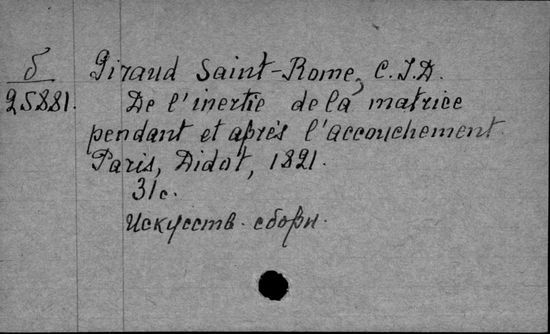 б
25881.
Giraud Saint-Rome, C.J.D.
De l'inertie de la matrice
pendant et après l'accouchement.
Paris, Didot, 1821.
31с.
Искусств. сборн.